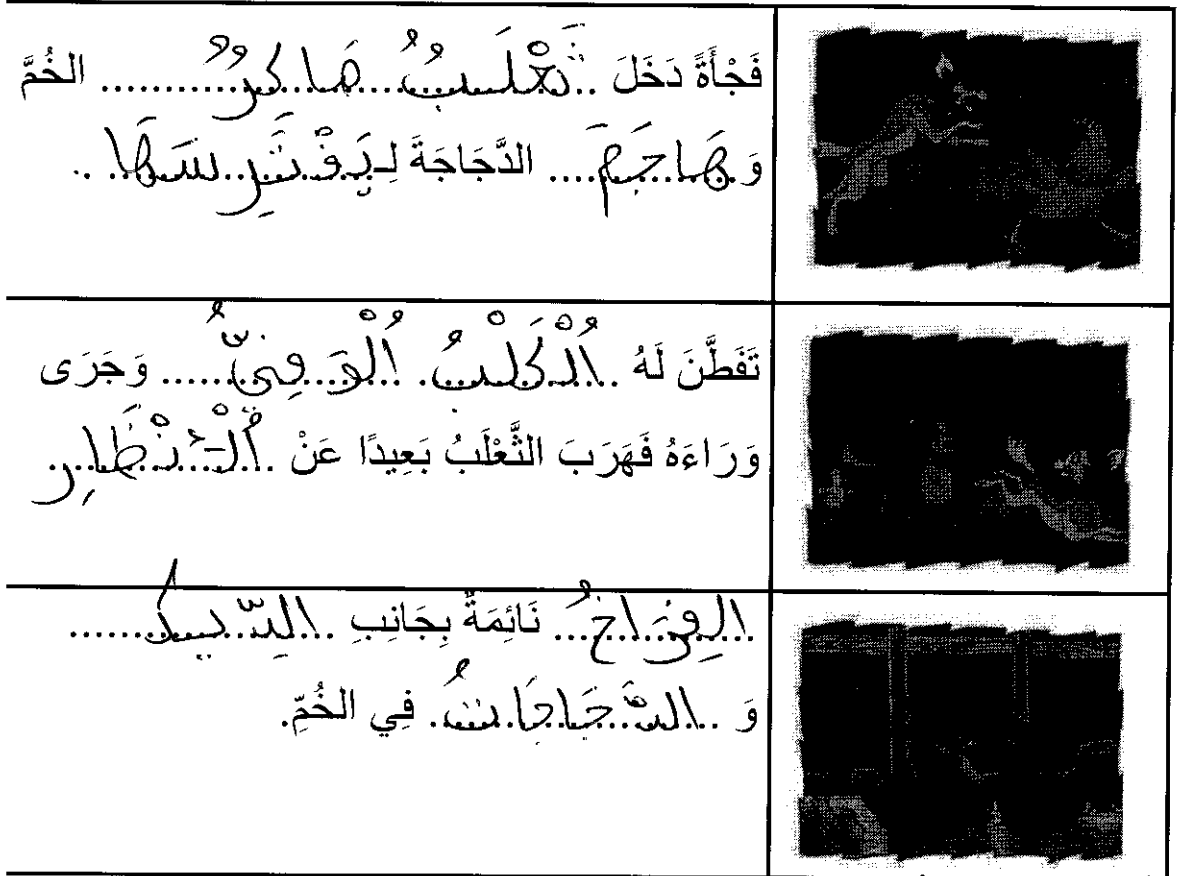 فَجْأَةً دَخَلَ ..ثَعْلَبٌ...مَاكِرٌ........... الخُمَّ
وَ هَاجَمَ.... الدَّجَاجَةَ لِـيَفْتَرِسَهَا ..
تَفَطَّنَ لَهُ ..اَلْكَلْبُ. اُلْوَفِيُّ...... وَجَرَى
وَرَاءَهُ فَهَرَبَ الثَّعْلَبُ بَعِيدًا عَنْ ..اُلْأَنْظَارِ
..الفِرَاخُ... نَائِمَةٌ بِجَانِبِ ..الدِّيكِ.......
وَ ..الدَّجَاجَاتُ. فِي الخُمِّ.